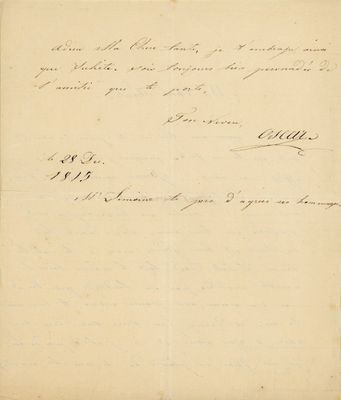 Adieu Ma Chere tante, je t'embrasse ainsi
que Juliete. Sois toujours bien persuadée de
l'amitié que te porte,
Ton Neveu,
Oscar
le 28 Dec.
1815
Mr Lemoine te prie d'agréer ses hommages